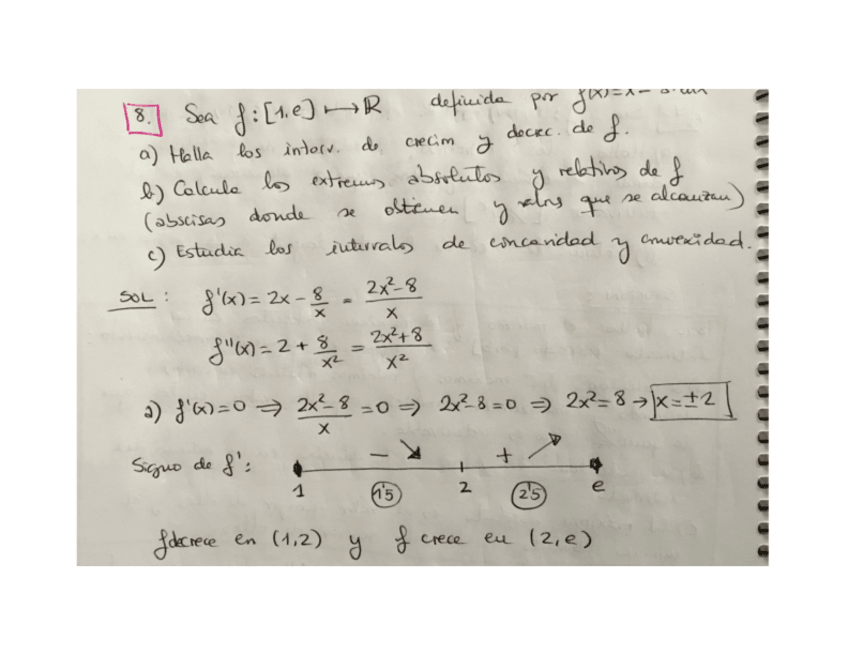 8. Sea f: [1,e] ⟼ R definida por f(x)=x
a) Halla los interv. de crecim y decrec. de f.
b) Calcula los extremos absolutos y relativos de f
(abscisas donde se obtienen y valors que se alcanzan)
c) Estudia los intervalos de concavidad y convexidad.
SOL: f'(x) = 2x - 8/x = 2x²-8/x
f''(x) = 2 + 8/x² = 2x²+8/x²
a) f'(x)=0 ⇒ 2x²-8/x =0 ⇒ 2x²-8=0 ⇒ 2x²=8 → x=±2
Signo de f': - ↘ + ↗
1 1'5 2 2'5 e
f decrece en (1,2) y f crece en (2,e)